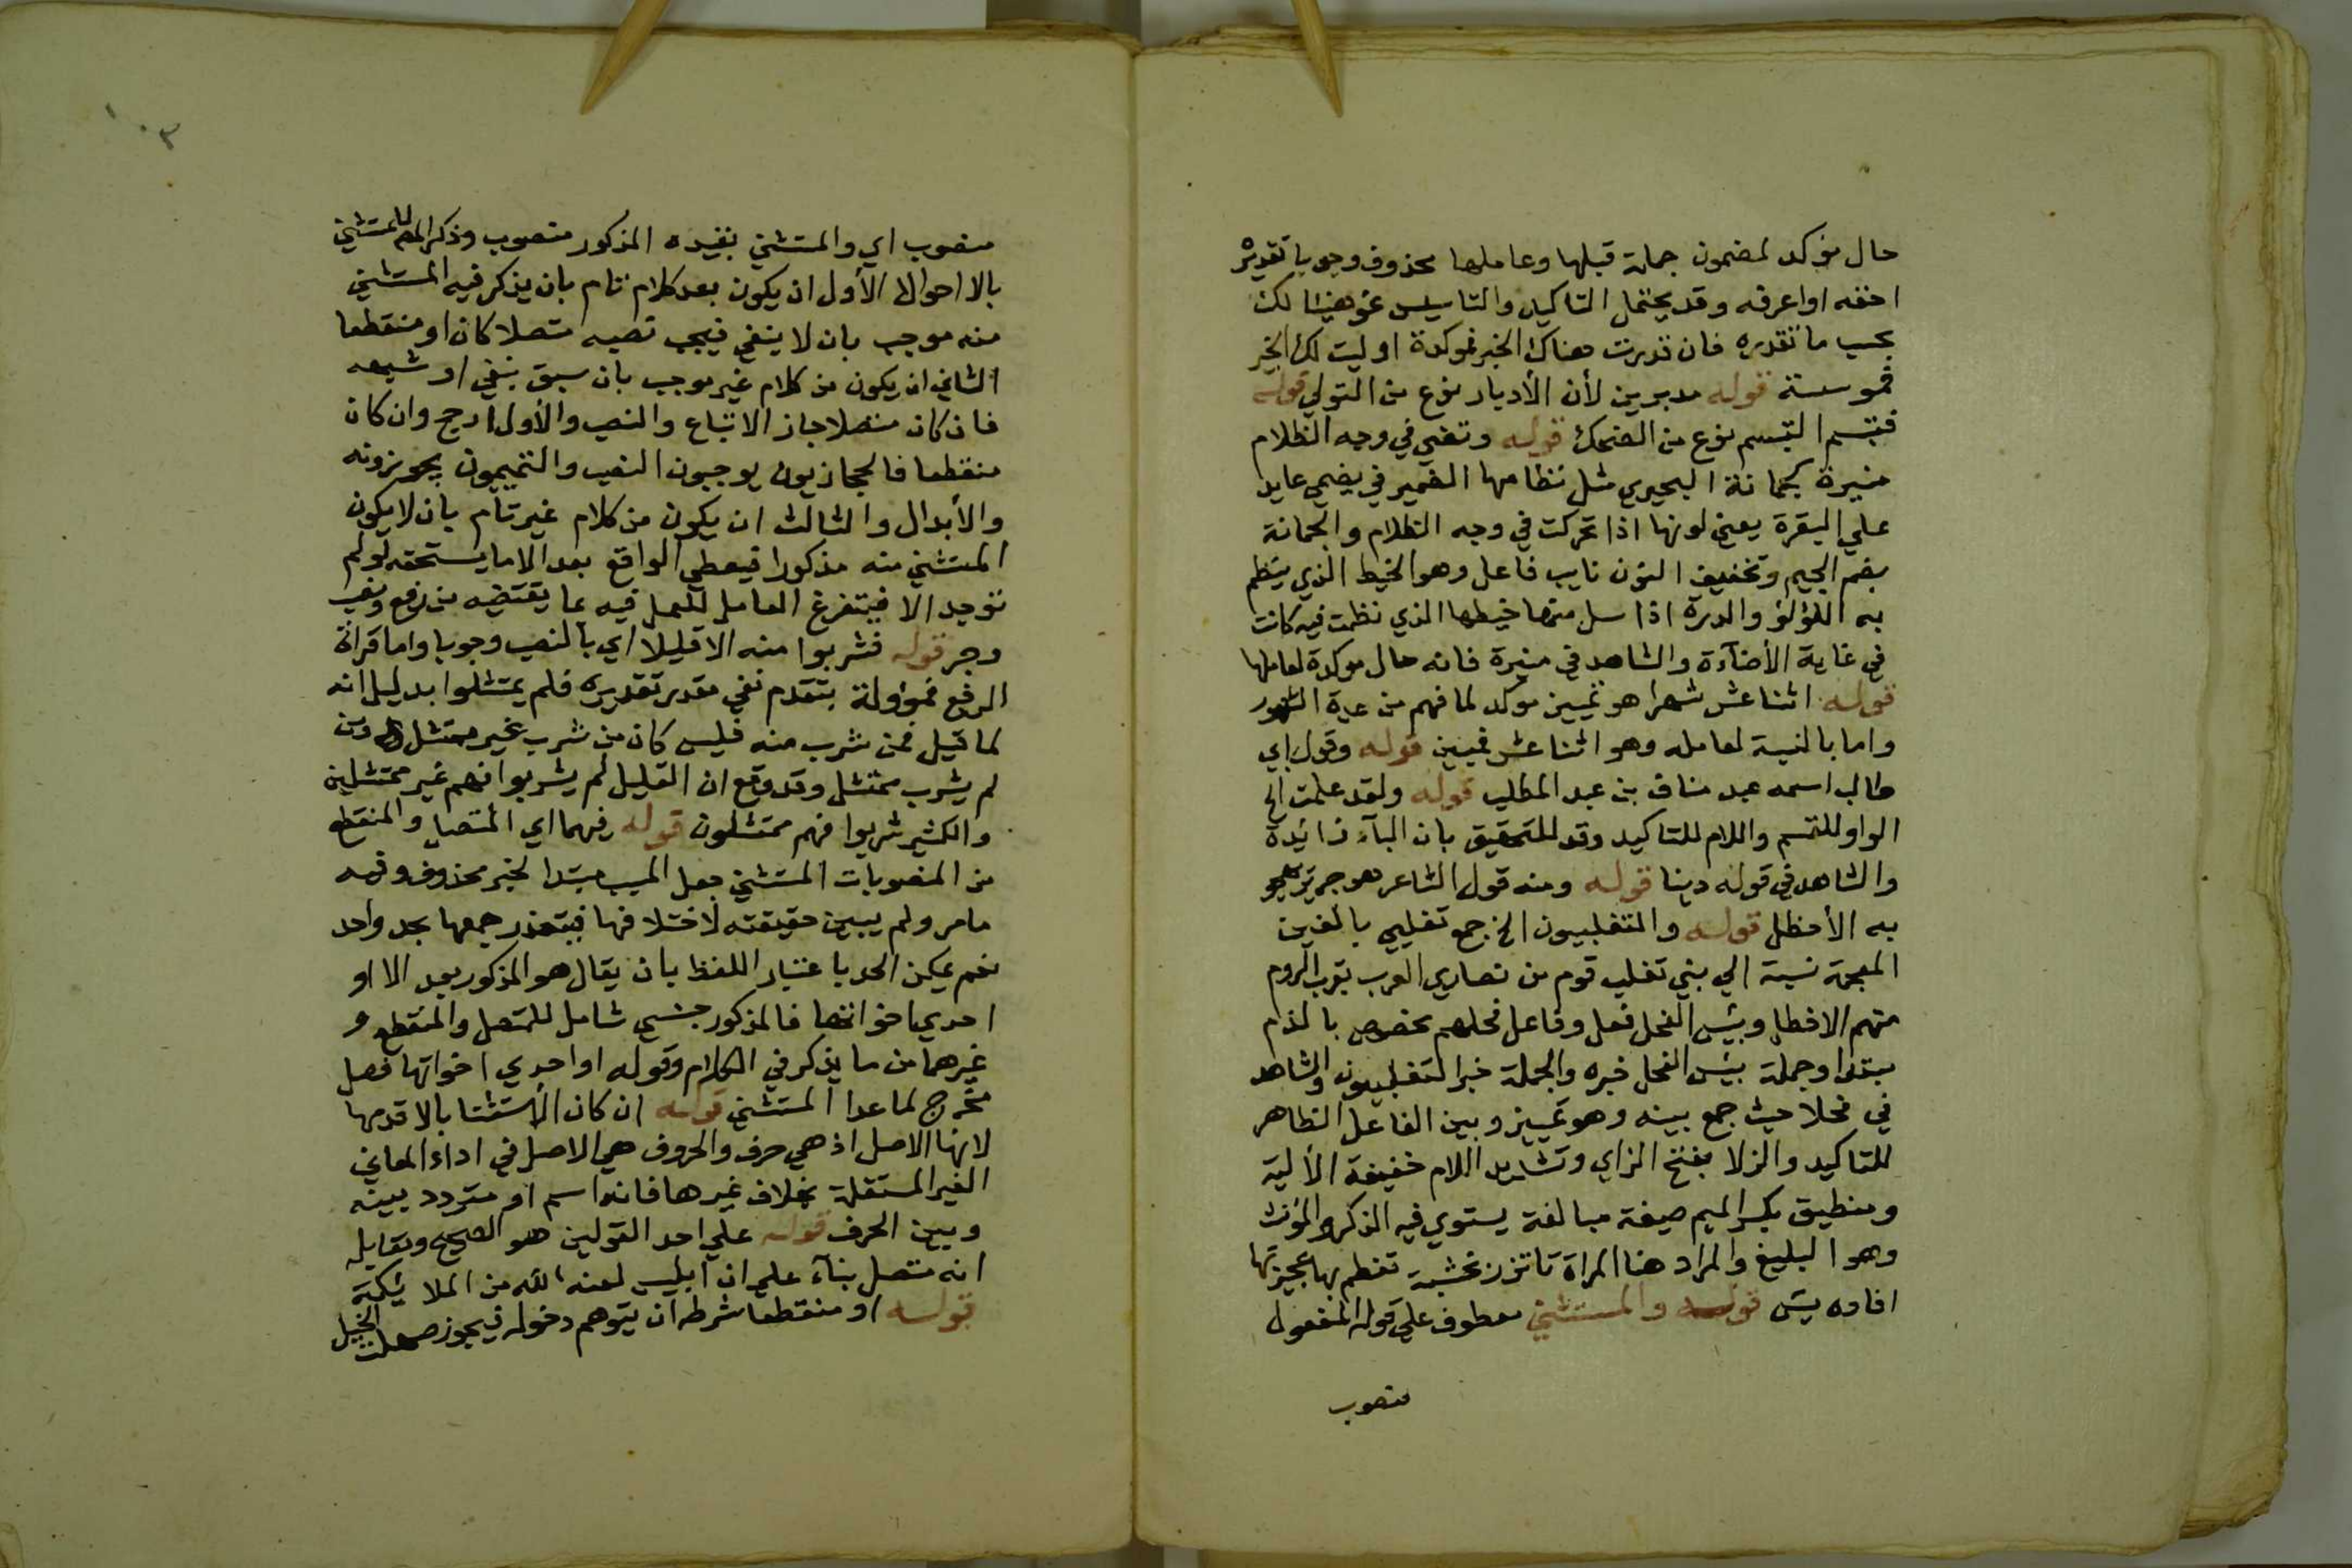 حال مؤكد لمضمون جملة قبلها وعاملها محذوف وجوبا تقديره
احقه او اعرفه وقد يحتمل التاكيد والتاسيس نحو هنيئا لك
بحسب ما تقدره فان قدرت هناك الخير فموكدة او ليت لك الخير
فموسسة قوله مدبرين لأن الأدبار نوع من التولي قوله
فتبسم التبسم نوع من الضحك قوله وتضي في وجه الظلام
منيرة كجمانة البحيري مثل نظامها الضمير في يضي عايد
علي البقرة يعني لونها اذا تحركت في وجه الظلام والجمانة
بضم الجيم وتخفيف النون نايب فاعل وهو الخيط الذي ينظم
به اللؤلؤ والدرة اذا سل منها خيطها الذي نظمت فيه كانت
في غاية الأضآءة والشاهد في منيرة فانه حال موكدة لعاملها
قوله اثنا عشر شهرا هو تمييز موكد لما فهم من عدة الشهور
واما بالنسبة لعامله وهو اثنا عشر فمبين قوله وقول ابي
طالب اسمه عبد مناف بن عبد المطلب قوله ولقد علمت الخ
الواو للقسم واللام للتاكيد وقد للتحقيق بان البآء زائدة
والشاهد في قوله دينا قوله ومنه قول الشاعر هو جرير يهجو
به الأخطل قوله والتغلبيون الخ جمع تغلبي بالغين
المعجمة نسبة الي بني تغلب قوم من نصاري العرب بقرب الروم
منهم الاخطل وبئس الفحل فعل وفاعل فحلهم مخصوص بالذم
مبتدا وجملة بئس الفحل خبره والجملة خبر التغلبيون والشاهد
في فحلا حيث جمع بينه وهو تمييز وبين الفاعل الظاهر
للتاكيد والزلا بفتح الزاي وتشديد اللام خفيفة الألية
ومنطيق بكسر الميم صيغة مبالغة يستوي فيه المذكر والمؤنث
وهو البليغ والمراد هنا المراة تاتزر بحشية تعظم بها عجيزتها
افاده يس قوله والمستثني معطوف علي قوله المفعول
منصوب
١٠٣
منصوب اي والمستثني بقيده المذكور منصوب وذكر المص للمستثني
بالا احوالا الأول ان يكون بعد كلام تام بان يذكر فيه المستثني
منه موجب بان لا ينفي فيجب نصبه متصلا كان او منقطعا
الثاني ان يكون من كلام غير موجب بان سبق بنفي او شبهه
فان كان متصلا جاز الاتباع والنصب والأول ارجح وان كان
منقطعا فالحجازيون يوجبون النصب والتميميون يجوزونه
والأبدال والثالث ان يكون من كلام غير تام بان لا يكون
المستثني منه مذكورا فيعطي الواقع بعد الا ما يستحقه لو لم
توجد الا فيتفرغ العامل للعمل فيه بما يقتضيه من رفع ونصب
وجر قوله فشربوا منه الا قليلا اي بالنصب وجوبا واما قرآة
الرفع فمؤولة بتقدم نفي مقدر تقديره فلم يمتثلوا بدليل انه
لما قيل فمن شرب منه فليس كان من شرب غير ممتثل ومن
لم يشرب ممتثل وقد وقع ان القليل لم يشربوا فهم غير ممتثلين
والكثير شربوا فهم ممتثلون قوله فهما اي المتصل والمنقطع
من المنصوبات المستثني جعل المستثني مبتدا لخبر محذوف وفيه
ما مر ولم يبين حقيقته لاختلافها فيتعذر جمعها بحد واحد
نعم يمكن الحد باعتبار اللفظ بان يقال هو المذكور بعد الا او
احدي اخواتها فالمذكور جنس شامل للمتصل والمنقطع و
غيرهما من ما يذكر في الكلام وقوله او احدي اخواتها فصل
مخرج لما عدا المستثني قوله ان كان الأستثنا بالا قدمها
لانها الاصل اذ هي حرف والحروف هي الاصل في اداء المعاني
الغير المستقلة بخلاف غيرها فانه اسم او متردد بينه
وبين الحرف قوله علي احد القولين هو الصحيح ومقابله
انه متصل بنآء علي ان ابليس لعنه الله من الملائكة
قوله او منقطعا شرطه ان يتوهم دخوله فيجوز صهلت الخيل